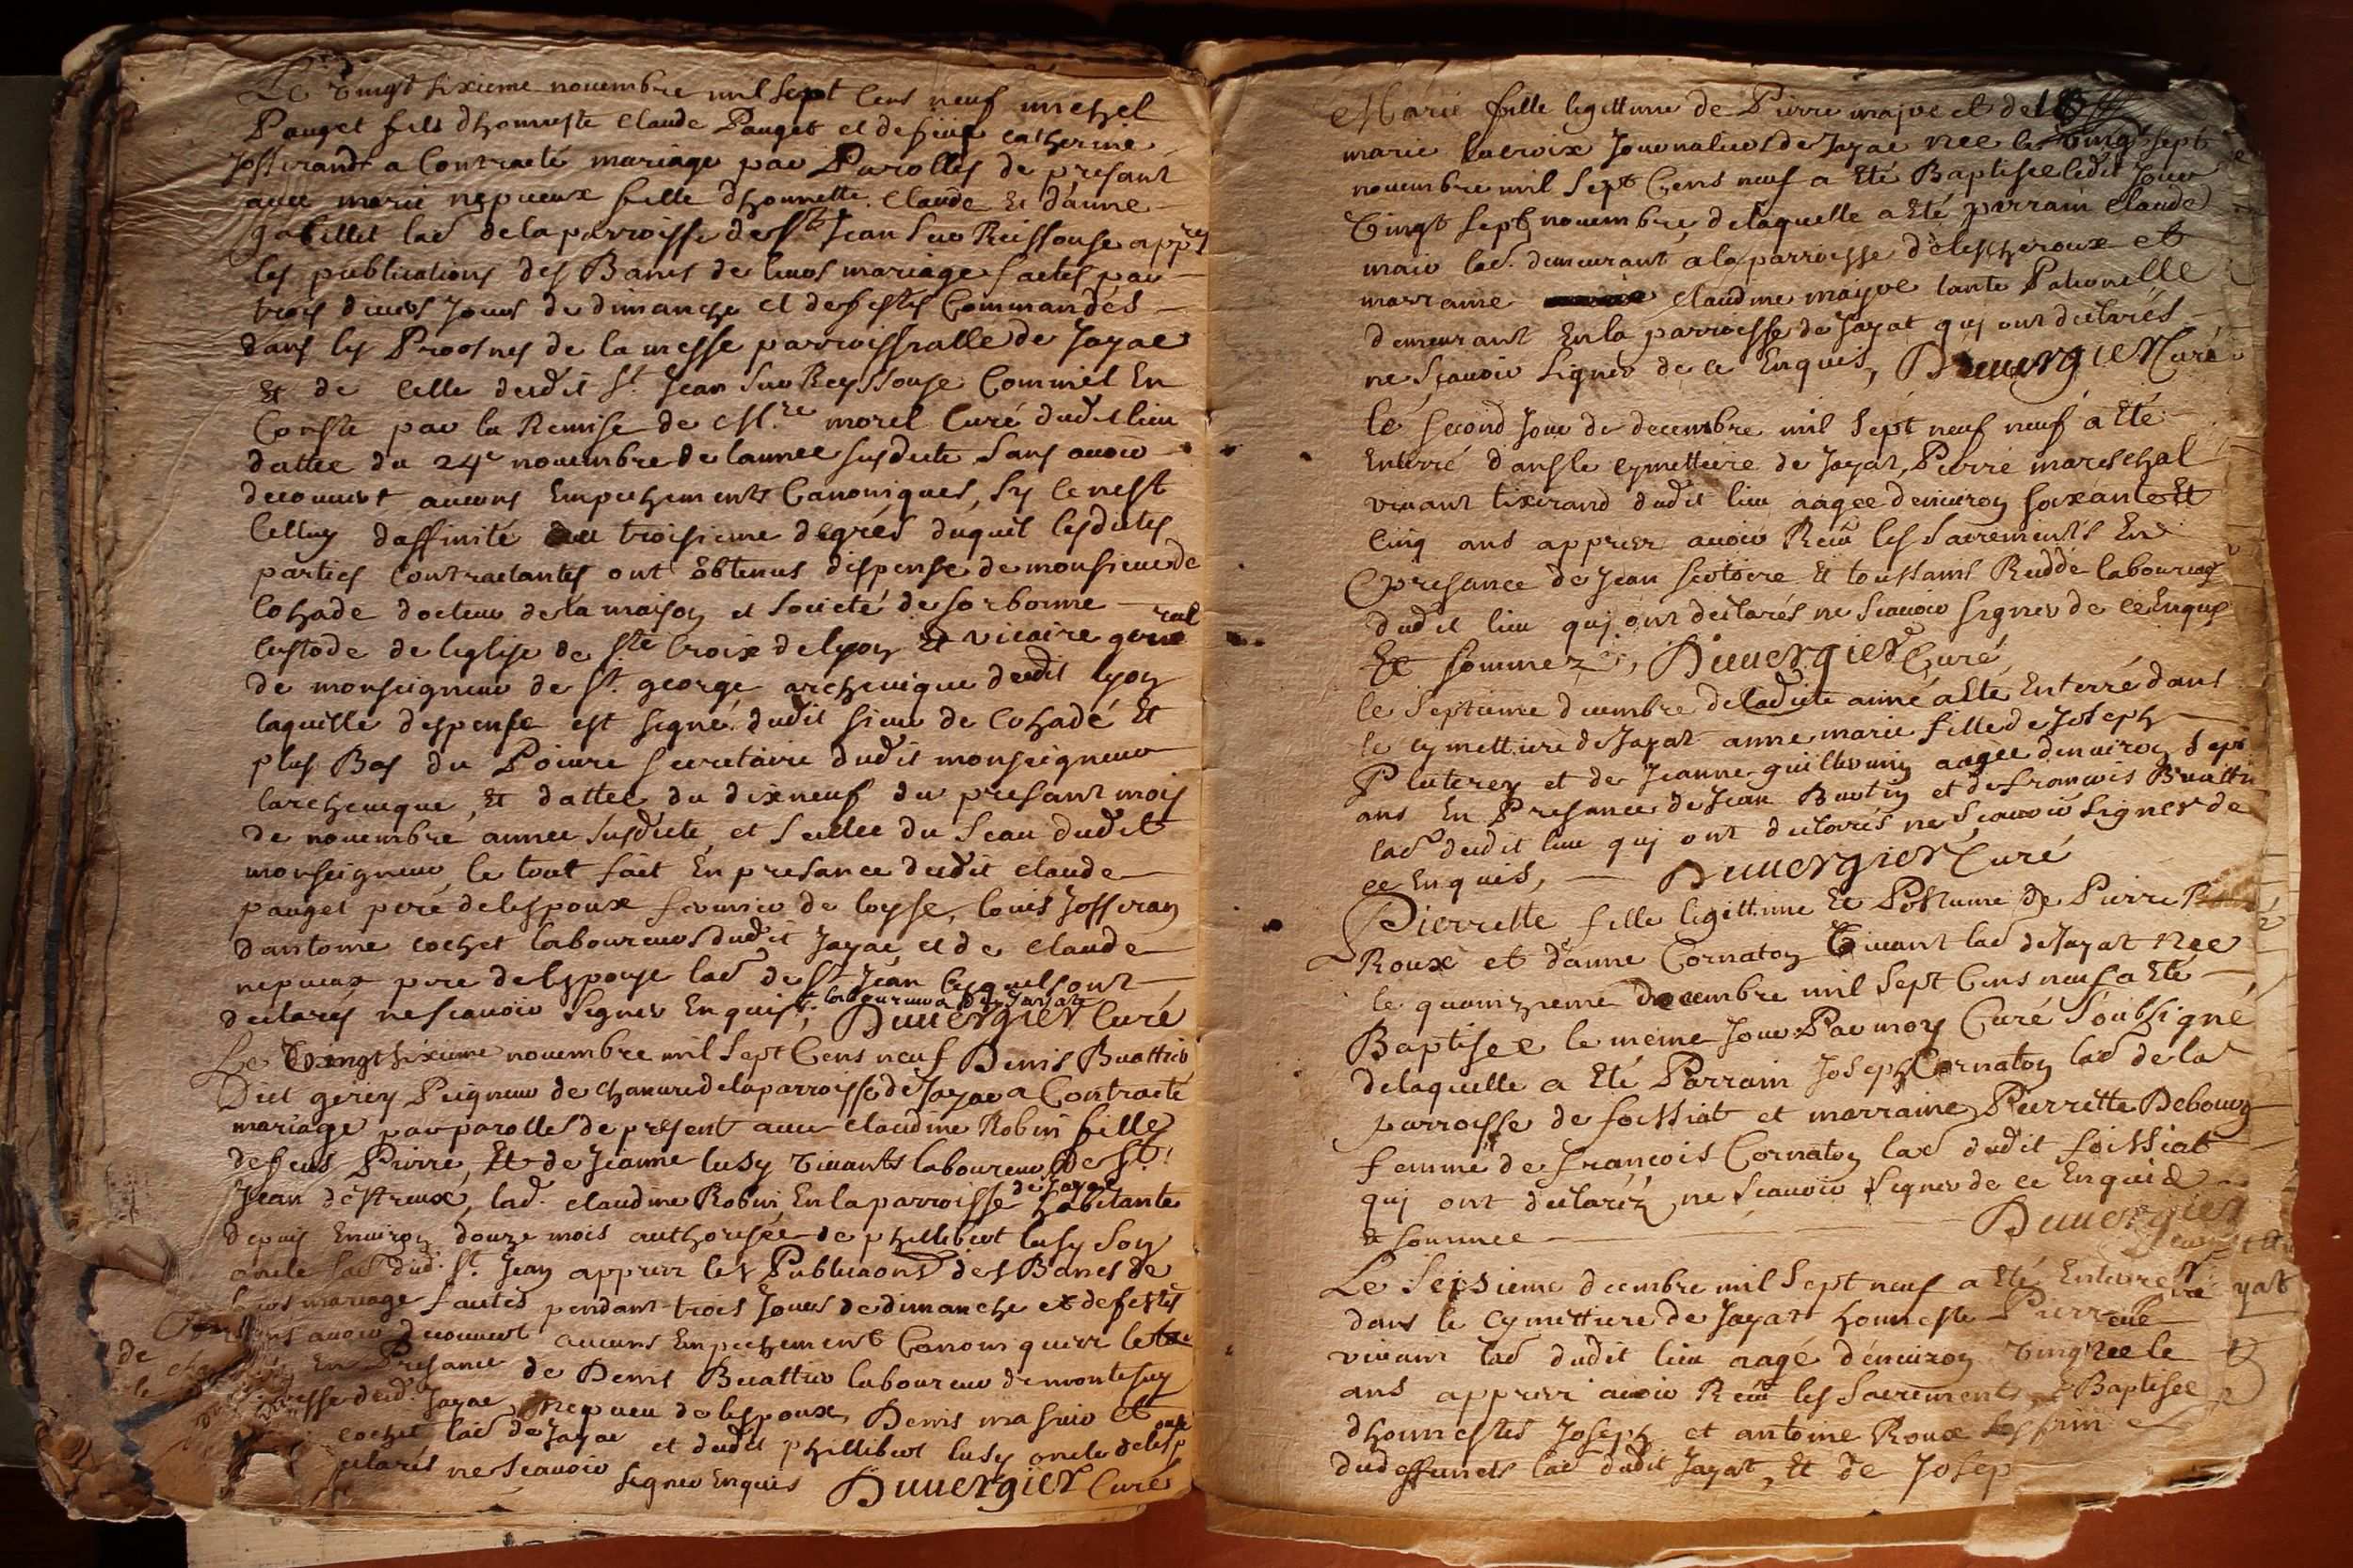 Le Vingt sixieme novembre mil sept cens neuf michel
Pauget fils dhonneste Claude Pauget et defüe catherine
Josserand a Contracté mariage par Parolles de presant
avec marie nepveux fille dhonneste Claude Et danne
gabillet lad de la parroisse de St Jean Sur Reissouse appres
les publications des Bancs de leurs mariage faites par
trois divers Jours de dimanche et defestes Commandés
dans les Proosnes de la messe parroissialle de Jayac
Et de Celle dudit St. Jean sur Reyssouse Comme il En
Conste par la Remise de Mre morel Curé dudit lieu
dattee du 24e novembre de lannee susdite Sans avoir
decouvert aucuns Empechements Canoniques, Sy ce nest
Celluy daffinité au troisieme degrés duquel lesdites
parties Contractantes ont obtenus dispense de monsieur de
Cohade docteur de la maison et Societé de sorbonne
Custode de leglise de Ste Croix de lyon Et vicaire general
de monseigneur de St. george archevique dudit lyon
laquelle despense est signé dudit sieur de Cohadé Et
plus Bas du Poivre secretaire dudit monseigneur
larcheveque, Et dattee du dixneuf du presant mois
de novembre annee susdite, et Scellee du Seau dudit
monseigneur le tout fait En presance dudit claude
pauget peré delespoux fermier de loyse, louis Josseran
dantoine cochet laboureurs dudit Jayac et de claude
nepveux pere delespouse lad de St Jean lesquels ont
declarés ne scavoir Signer Enquis, Duuergier Curé
Le Vingt sixieme novembre mil sept Cens neuf Denis Buattier
Dict gerin Peigneur de chanvre de la parroisse de Jayac a Contracté
mariage par parolles de present avec claudine Robin fille
defeus Pierre, Et de Jeanne lusy vivants laboureurs de St.
Jean déstreux, lad. claudine Robin En la parroisse de Jayac habitante
depuis Environ douze mois authorisée de phillibert lusy son
oncle lad dud. St. Jean apprez les Publicaons des Bancs de
leurs mariage faites pendant trois Jours de dimanche et defestes
sans avoir decouvert aucuns Empechement Canonique
En Presance de Denis Buattier laboureur de montesuy
dud. Jayac, Nepveu de lespoux, Denis et
cochet lad de Jayac et dudit phillibert lusy oncle delespouse
declarés ne Scavoir signer Enquis Duuergier Curé
Marie fille legittime de Pierre majve et de
marie lacroix Journaliers de Jayac née le Vingt sept
novembre mil Sept Cens neuf a Eté Baptisee ledit Jour
Vingt Sept novembre, de laquelle a Eté parrain Claude
lad. demeurant a la parroisse déléscheroux et
marraine claudine mayve tante Paternelle
demeurant En la parroisse de Jayat quj ont declarés
ne Scavoir signer de ce Enquis, Duuergier Curé
le second Jour de decembre mil Sept neuf neuf a Eté
Enterré dans le cymettiere de Jayat, Pierre mareschal
vivant tixerand dudit lieu aagee denviron soixante Et
cinq ans apprez avoir Reeu les Sacrements En
presance de Jean et toussaint Ruddé laboureurs
dudit lieu quj ont declarés ne Scavoir signer de ce Enquis
Et sommez, Duuergier Curé
le Septieme decembre de ladite anné a Eté Enterré dans
le cymettiere de Jayat anne marie fille de Joseph
Pluterey et de Jeanne aagee denviron Sept
ans En Presance de Jean et defrancois Buattier
lad dudit lieu quj ont declarés ne Scavoir Signer de
ce Enquis, Duuergier Curé
Pierrette fille legittime Et Postume de Pierre
Roux et danne Cornaton Vivant lad de Jayat Née
le quainzieme decembre mil Sept Cens neuf a Eté
Baptisee le méme Jour Par moy Curé Soubsigné
delaquelle a Eté Parrain Joseph Cornaton lad de la
parroisse de foissiat et marraine Pierrette Debourg
femme de françois Cornaton lad dudit foissiat
quj ont declaréz ne Scavoir Signer de ce Enquis
& sommee Duuergier
Le Seisieme decembre mil Sept neuf a Eté Enterre
dans le cymettiere de Jayat honneste Pierre
vivant lad dudit lieu aagé denviron
ans apprez avoir Reeu les Sacrements Baptisee
dhonnestes Joseph et antoine Roux
dudeffuncts lad dudit Jayat, Et de Josep